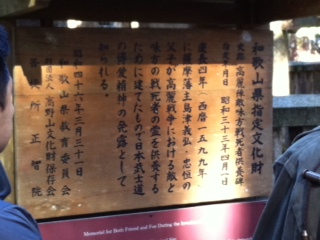 和歌山県指定文化財
史跡 高麗陣敵味方戦死者供養碑
指定年月日 昭和三十三年四月一日
慶長四年(西暦一五九九年)
に薩摩藩主島津義弘・忠恒の
父子が高麗戦争における敵と
味方の戦死者の霊を供養する
ために建てたもので日本武士道
の博愛精神の発露として
知られる。
昭和四十六年三月三十一日
和歌山県教育委員会
高野山文化財保存会
正智院
Memorial for Both Friend and Foe During the